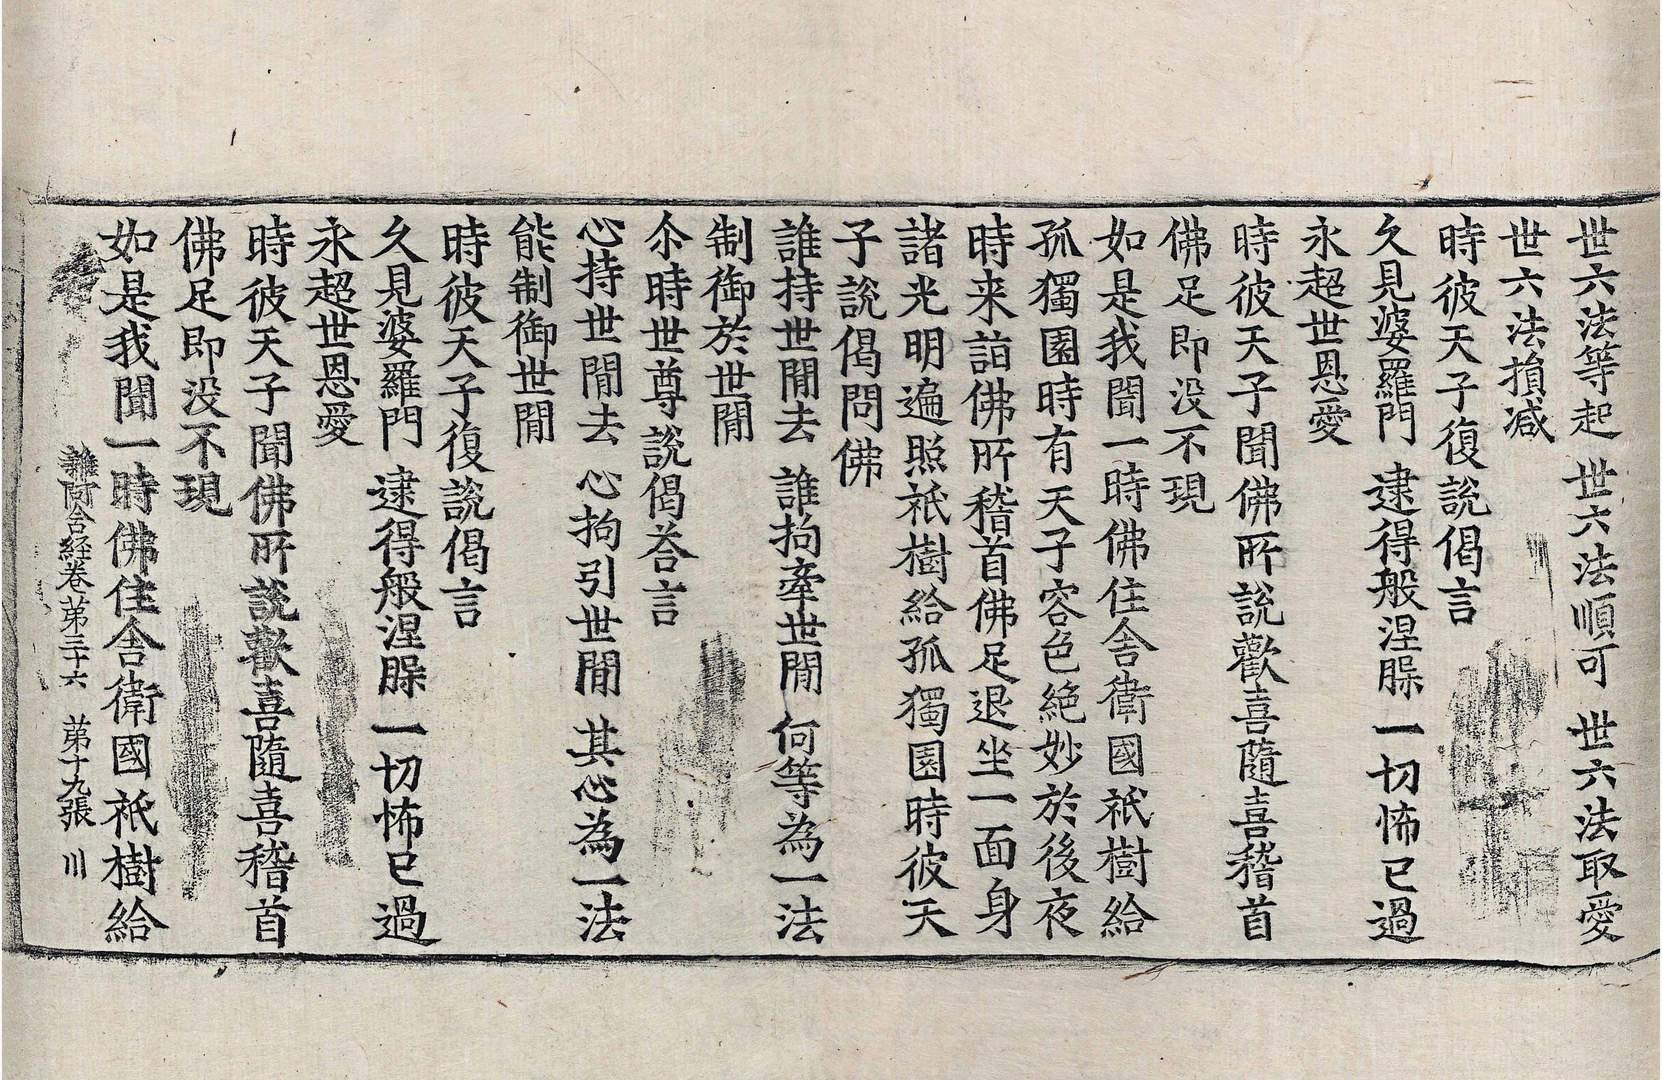 世六法等起 世六法順可 世六法取愛
世六法損减
時彼天子復說偈言
久見婆羅門 逮得般涅槃 一切怖已過
永超世恩愛
時彼天子聞佛所說歡喜隨喜稽首
佛足即没不現
如是我聞一時佛住舍衛國祇樹給
孤獨園時有天子容色絶妙於後夜
時来詣佛所稽首佛足退坐一面身
諸光明遍照祇樹給孤獨園時彼天
子說偈問佛
誰持世閒去 誰拘牽世閒 何等為一法
制御於世閒
尒時世尊說偈荅言
心持世閒去 心拘引世閒 其心為一法
能制御世閒
時彼天子復說偈言
久見婆羅門 逮得般涅槃 一切怖已過
永超世恩愛
時彼天子聞佛所說歡喜隨喜稽首
佛足即没不現
如是我聞一時佛住舍衛國祇樹給
雜阿含経卷第三十六 第十九張 川